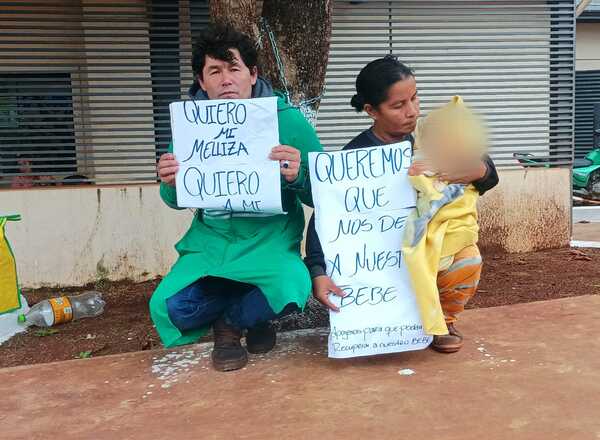 QUIERO
MI
MELLIZA
QUIERO
A MI
QUEREMOS
QUE
NOS DE
A NUEST
BEBE
Apoyenos para que podam
Recuperar a nuestro BEBE